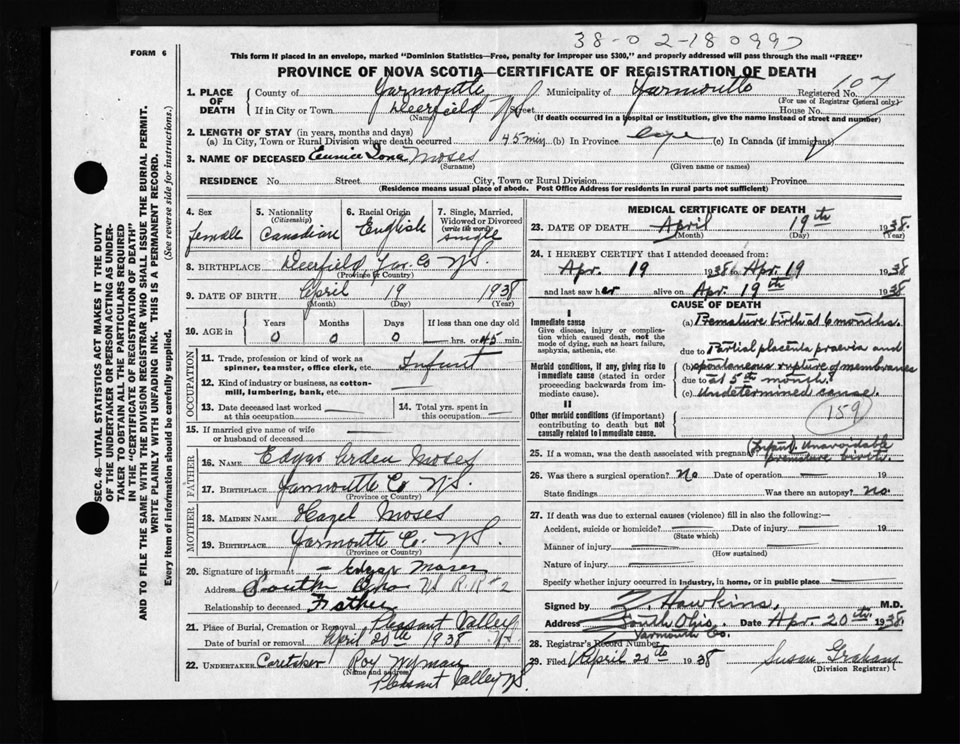 38-02-180997
FORM 6
This form if placed in an envelope, marked "Dominion Statistics—Free, penalty for improper use $300," and properly addressed will pass through the mail "FREE"
PROVINCE OF NOVA SCOTIA—CERTIFICATE OF REGISTRATION OF DEATH
1. PLACE OF DEATH County of Yarmouth Municipality of Yarmouth Registered No. 107
(For use of Registrar General only)
If in City or Town Deerfield N.S. Street House No.
(Name) (If death occurred in a hospital or institution, give the name instead of street and number)
2. LENGTH OF STAY (in years, months and days)
(a) In City, Town or Rural Division where death occurred 45 min (b) In Province (c) In Canada (if immigrant)
3. NAME OF DECEASED Eunice Iona Moses
(Surname) (Given name or names)
RESIDENCE No. Street City, Town or Rural Division Province
(Residence means usual place of abode. Post Office Address for residents in rural parts not sufficient)
SEC. 46—VITAL STATISTICS ACT MAKES IT THE DUTY
OF THE UNDERTAKER OR PERSON ACTING AS UNDER-
TAKER TO OBTAIN ALL THE PARTICULARS REQUIRED
IN THE "CERTIFICATE OF REGISTRATION OF DEATH"
AND TO FILE THE SAME WITH THE DIVISION REGISTRAR WHO SHALL ISSUE THE BURIAL PERMIT.
WRITE PLAINLY WITH UNFADING INK. THIS IS A PERMANENT RECORD.
Every item of information should be carefully supplied. (See reverse side for instructions.)
4. Sex female
5. Nationality (Citizenship) Canadian
6. Racial Origin English
7. Single, Married, Widowed or Divorced (write the word) single
8. BIRTHPLACE Deerfield Yar. Co N.S.
(Province or Country)
9. DATE OF BIRTH April 19 1938
(Month) (Day) (Year)
10. AGE in Years Months Days If less than one day old
0 0 0 hrs. or 45 min.
OCCUPATION
11. Trade, profession or kind of work as spinner, teamster, office clerk, etc. Infant
12. Kind of industry or business, as cotton-mill, lumbering, bank, etc.
13. Date deceased last worked at this occupation
14. Total yrs. spent in this occupation
15. If married give name of wife or husband of deceased
FATHER
16. NAME Edgar Arden Moses
17. BIRTHPLACE Yarmouth Co N.S.
(Province or Country)
MOTHER
18. MAIDEN NAME Hazel Moses
19. BIRTHPLACE Yarmouth Co. N.S.
(Province or Country)
20. Signature of informant Edgar Moses
Address South Ohio N.S. R.R. #2
Relationship to deceased Father
21. Place of Burial, Cremation or Removal Pleasant Valley
Date of burial or removal April 20th 1938 N.S.
22. UNDERTAKER Caretaker Roy Wyman
(Name and address)
Pleasant Valley N.S.
MEDICAL CERTIFICATE OF DEATH
23. DATE OF DEATH April 19th 1938
(Month) (Day) (Year)
24. I HEREBY CERTIFY that I attended deceased from:
Apr. 19 1938 to Apr. 19 1938
and last saw her alive on Apr. 19th 1938
CAUSE OF DEATH
I
Immediate cause
Give disease, injury or complication which caused death, not the mode of dying, such as heart failure, asphyxia, asthenia, etc.
(a) Premature birth at 6 months.
due to Partial placenta praevia and
Morbid conditions, if any, giving rise to immediate cause (stated in order proceeding backwards from immediate cause).
(b) spontaneous rupture of membranes
due to at 5th month.
(c) Undetermined cause.
159
II
Other morbid conditions (if important) contributing to death but not causally related to immediate cause.
25. If a woman, was the death associated with pregnancy? (Infant) Unavoidable
premature birth.
26. Was there a surgical operation? No Date of operation 19
State findings Was there an autopsy? No
27. If death was due to external causes (violence) fill in also the following:—
Accident, suicide or homicide? Date of injury 19
(State which)
Manner of injury
(How sustained)
Nature of injury
Specify whether injury occurred in industry, in home, or in public place
Signed by Z. Hawkins, M.D.
Address South Ohio, Date Apr. 20th 1938
Yarmouth Co.
28. Registrar's Record Number
29. Filed April 20th 1938 Susan Graham
(Division Registrar)